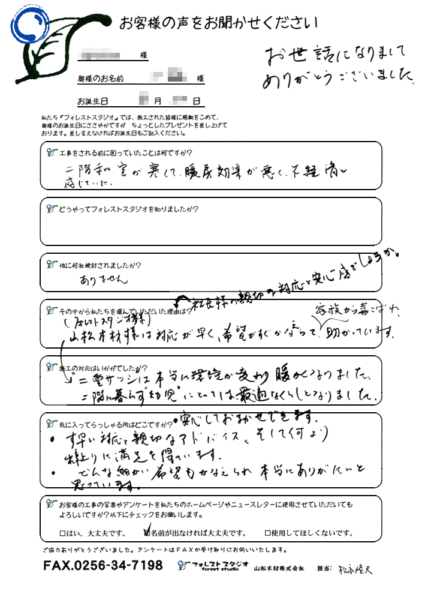 お客様の声をお聞かせください
様
奥様のお名前 様
お誕生日 月 日
お世話になりまして
ありがとうございました。
私たち『フォレストスタジオ』では、施工された皆様に感謝をこめて、
奥様のお誕生日にささやかですが ちょっとしたプレゼントを差し上げて
おります。差し支えなければお誕生日もご記入ください。
工事をされる前に困っていたことは何ですか?
二階和室が寒くて、暖房効果が悪く、不経済に
感じていた。
どうやってフォレストスタジオを知りましたか?
他に何社検討されましたか?
ありません
社長様の親切な対応と安心感でしょうか。
そのやから私たちを選んでいただいた理由は?
(フォレストスタジオ様)
家族から喜ばれ
山松木材様は対応が早く、希望がすぐかなって 助かっています。
施工の対応はいかがでしたか?
二重サッシは本当に環境が変わり 暖かくなりました。
二階に暮らす には最適なくらしとなりました。
気に入ってらっしゃる所はどこですか?
・安心しておまかせできます。
・す早い対応と親切なアドバイス、そして何より
仕上りに満足を得ています。
・どんな細かい希望もかなえられ 本当にありがたいと
思っています。
お客様の工事の写真やアンケートを私たちのホームページやニュースレターに使用させていただいても
よろしいですか?以下にチェックをお願いします。
□はい、大丈夫です。 ☑名前が出なければ大丈夫です。 □使用してほしくない。
ご協力ありがとうございました。アンケートはFAXか受け取りにお伺いいたします。
FAX.0256-34-7198 フォレストスタジオ forest studio 山松木材株式会社 担当: